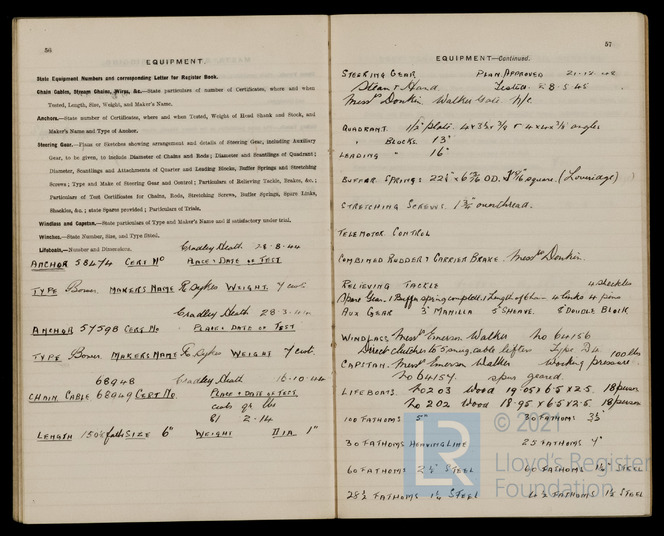 56
EQUIPMENT.
State Equipment Numbers and corresponding Letter for Register Book.
Chain Cables, Stream Chains, Wires, &c.—State particulars of number of Certificates, where and when
Tested, Length, Size, Weight, and Maker's Name.
Anchors.—State number of Certificates, where and when Tested, Weight of Head Shank and Stock, and
Maker's Name and Type of Anchor.
Steering Gear.—Plans or Sketches showing arrangement and details of Steering Gear, including Auxiliary
Gear, to be given, to include Diameter of Chains and Rods; Diameter and Scantlings of Quadrant;
Diameter, Scantlings and Attachments of Quarter and Leading Blocks, Buffer Springs and Stretching
Screws; Type and Make of Steering Gear and Control; Particulars of Relieving Tackle, Brakes, &c.;
Particulars of Test Certificates for Chains, Rods, Stretching Screws, Buffer Springs, Spare Links,
Shackles, &c.; state Spares provided; Particulars of Trials.
Windlass and Capstan.—State particulars of Type and Maker's Name and if satisfactory under trial.
Winches.—State Number, Size, and Type fitted.
Lifeboats.—Number and Dimensions.
Cradley Heath 28-8-44
ANCHOR 58474 CERT NO PLACE & DATE OF TEST
TYPE Bower MAKERS NAME R Sykes WEIGHT 7 cwt.
Cradley Heath 28-3-44
ANCHOR 57598 CERT NO PLACE & DATE OF TEST
TYPE Bower MAKERS NAME R Sykes WEIGHT 7 cwt.
68948 Cradley Heath 16-10-44
CHAIN CABLE 68049 CERT NO. PLACE & DATE OF TEST
cwts qr lbs
81 2-14
LENGTH faths SIZE 6" WEIGHT DIA 1"
57
EQUIPMENT—Continued.
STEERING GEAR PLAN APPROVED
Steam & Hand Tested 28-5-45
Messrs Donkin Walker Gate N/C
QUADRANT 1/2" plate 4x3½x3/8 & 4x4x3/8 angles
" BLOCKS 13"
LEADING " 16"
BUFFER SPRINGS OD. square (Loveridge)
STRETCHING SCREWS
TELEMOTOR CONTROL
COMBINED RUDDER & CARRIER BRAKE Messrs Donkin.
RELIEVING TACKLE 4 shackles
Spare Gear, 1 Buffer spring complete, 1 length of chain 4 links 4 pins
AUX GEAR 3" MANILLA 5" SHEAVE. & DOUBLE BLOCK
WINDLASS Messrs Emerson Walker No 64156
Direct clutches to cable lifter Type
CAPSTAN Messrs Emerson Walker Working pressure 100 lbs
No 64157. spur geared
LIFEBOATS. No 203 Wood 19.05 x 6.5 x 2.5. 18 person
No 202 Wood 18.95 x 6.5 x 2.5 18 person
100 FATHOMS 5" 30 FATHOMS 3½
30 FATHOMS HEAVING LINE 25 FATHOMS 4"
60 FATHOMS 2½" STEEL 60 FATHOMS 1½" STEEL
28½ FATHOMS 1¼ STEEL 42 FATHOMS 1½ STEEL
© 2021
Lloyd's Register
Foundation
LR